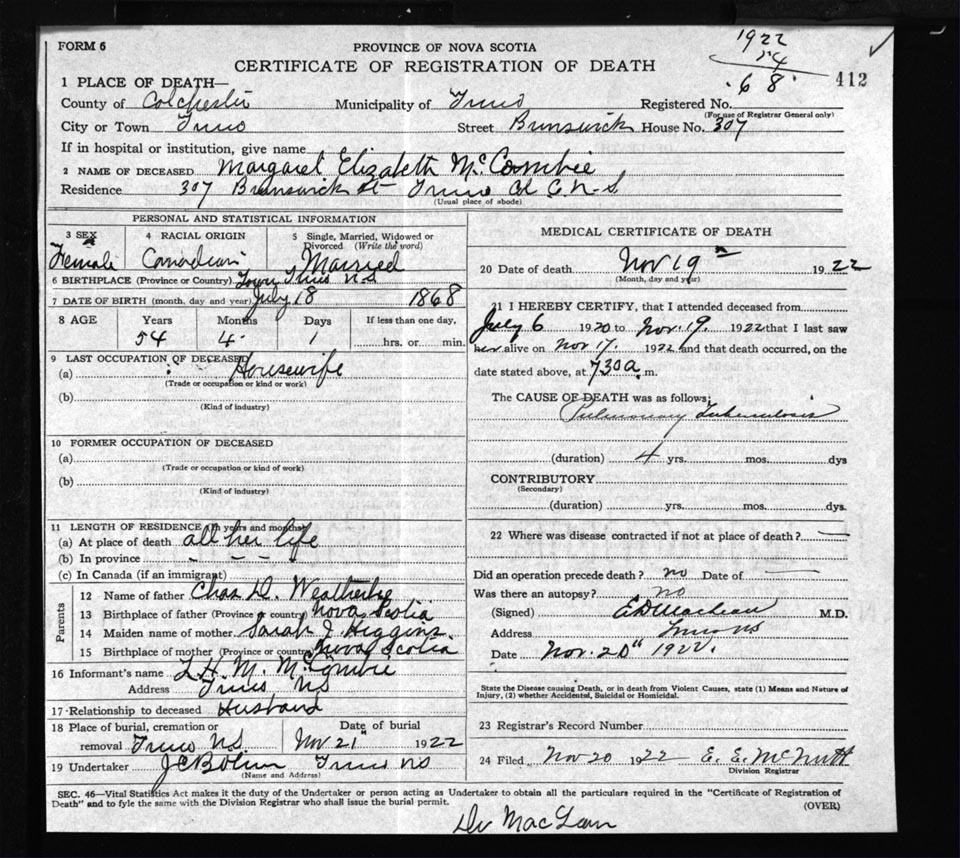 FORM 6
PROVINCE OF NOVA SCOTIA
CERTIFICATE OF REGISTRATION OF DEATH
1922
54
68
412
1 PLACE OF DEATH—
County of Colchester Municipality of Truro Registered No.
(For use of Registrar General only)
City or Town Truro Street Brunswick House No. 307
If in hospital or institution, give name
2 NAME OF DECEASED Margaret Elizabeth McCombie
Residence 307 Brunswick St Truro Col C. N-S
(Usual place of abode)
PERSONAL AND STATISTICAL INFORMATION
3 SEX 4 RACIAL ORIGIN 5 Single, Married, Widowed or Divorced (Write the word)
Female Canadian Married
6 BIRTHPLACE (Province or Country) Town Truro N.S
7 DATE OF BIRTH (month, day and year) July 18 1868
8 AGE Years Months Days If less than one day,
54 4 1 hrs. or min.
9 LAST OCCUPATION OF DECEASED
(a) Housewife
(Trade or occupation or kind or work)
(b)
(Kind of industry)
10 FORMER OCCUPATION OF DECEASED
(a)
(Trade or occupation or kind of work)
(b)
(Kind of industry)
11 LENGTH OF RESIDENCE (in years and months)
(a) At place of death all her life
(b) In province - - -
(c) In Canada (if an immigrant)
Parents
12 Name of father Chas D. Weatherbe
13 Birthplace of father (Province or country) Nova Scotia
14 Maiden name of mother Sarah J Higgins.
15 Birthplace of mother (Province or country) Nova Scotia
16 Informant's name L. H. M. McCombie
Address Truro NS
17 Relationship to deceased Husband
18 Place of burial, cremation or removal Truro N.S. Date of burial Nov 21 1922
19 Undertaker Truro NS
(Name and Address)
MEDICAL CERTIFICATE OF DEATH
20 Date of death Nov 19th 1922
(Month, day and year)
21 I HEREBY CERTIFY, that I attended deceased from
July 6 1920 to Nov. 19. 1922 that I last saw
her alive on Nov 17. 1922 and that death occurred, on the
date stated above, at 7 30 a. m.
The CAUSE OF DEATH was as follows:
Pulmonary Tuberculosis
(duration) 4 yrs. mos. dys
CONTRIBUTORY
(Secondary)
(duration) yrs. mos. dys.
22 Where was disease contracted if not at place of death? —
Did an operation precede death? no Date of —
Was there an autopsy? no
(Signed) M.D.
Address Truro NS
Date Nov. 20" 1922.
State the Disease causing Death, or in death from Violent Causes, state (1) Means and Nature of
Injury, (2) whether Accidental, Suicidal or Homicidal.
23 Registrar's Record Number
24 Filed Nov 20 1922 E. E. McNutt
Division Registrar
SEC. 46—Vital Statistics Act makes it the duty of the Undertaker or person acting as Undertaker to obtain all the particulars required in the "Certificate of Registration of
Death" and to fyle the same with the Division Registrar who shall issue the burial permit.
(OVER)
Dr MacLean